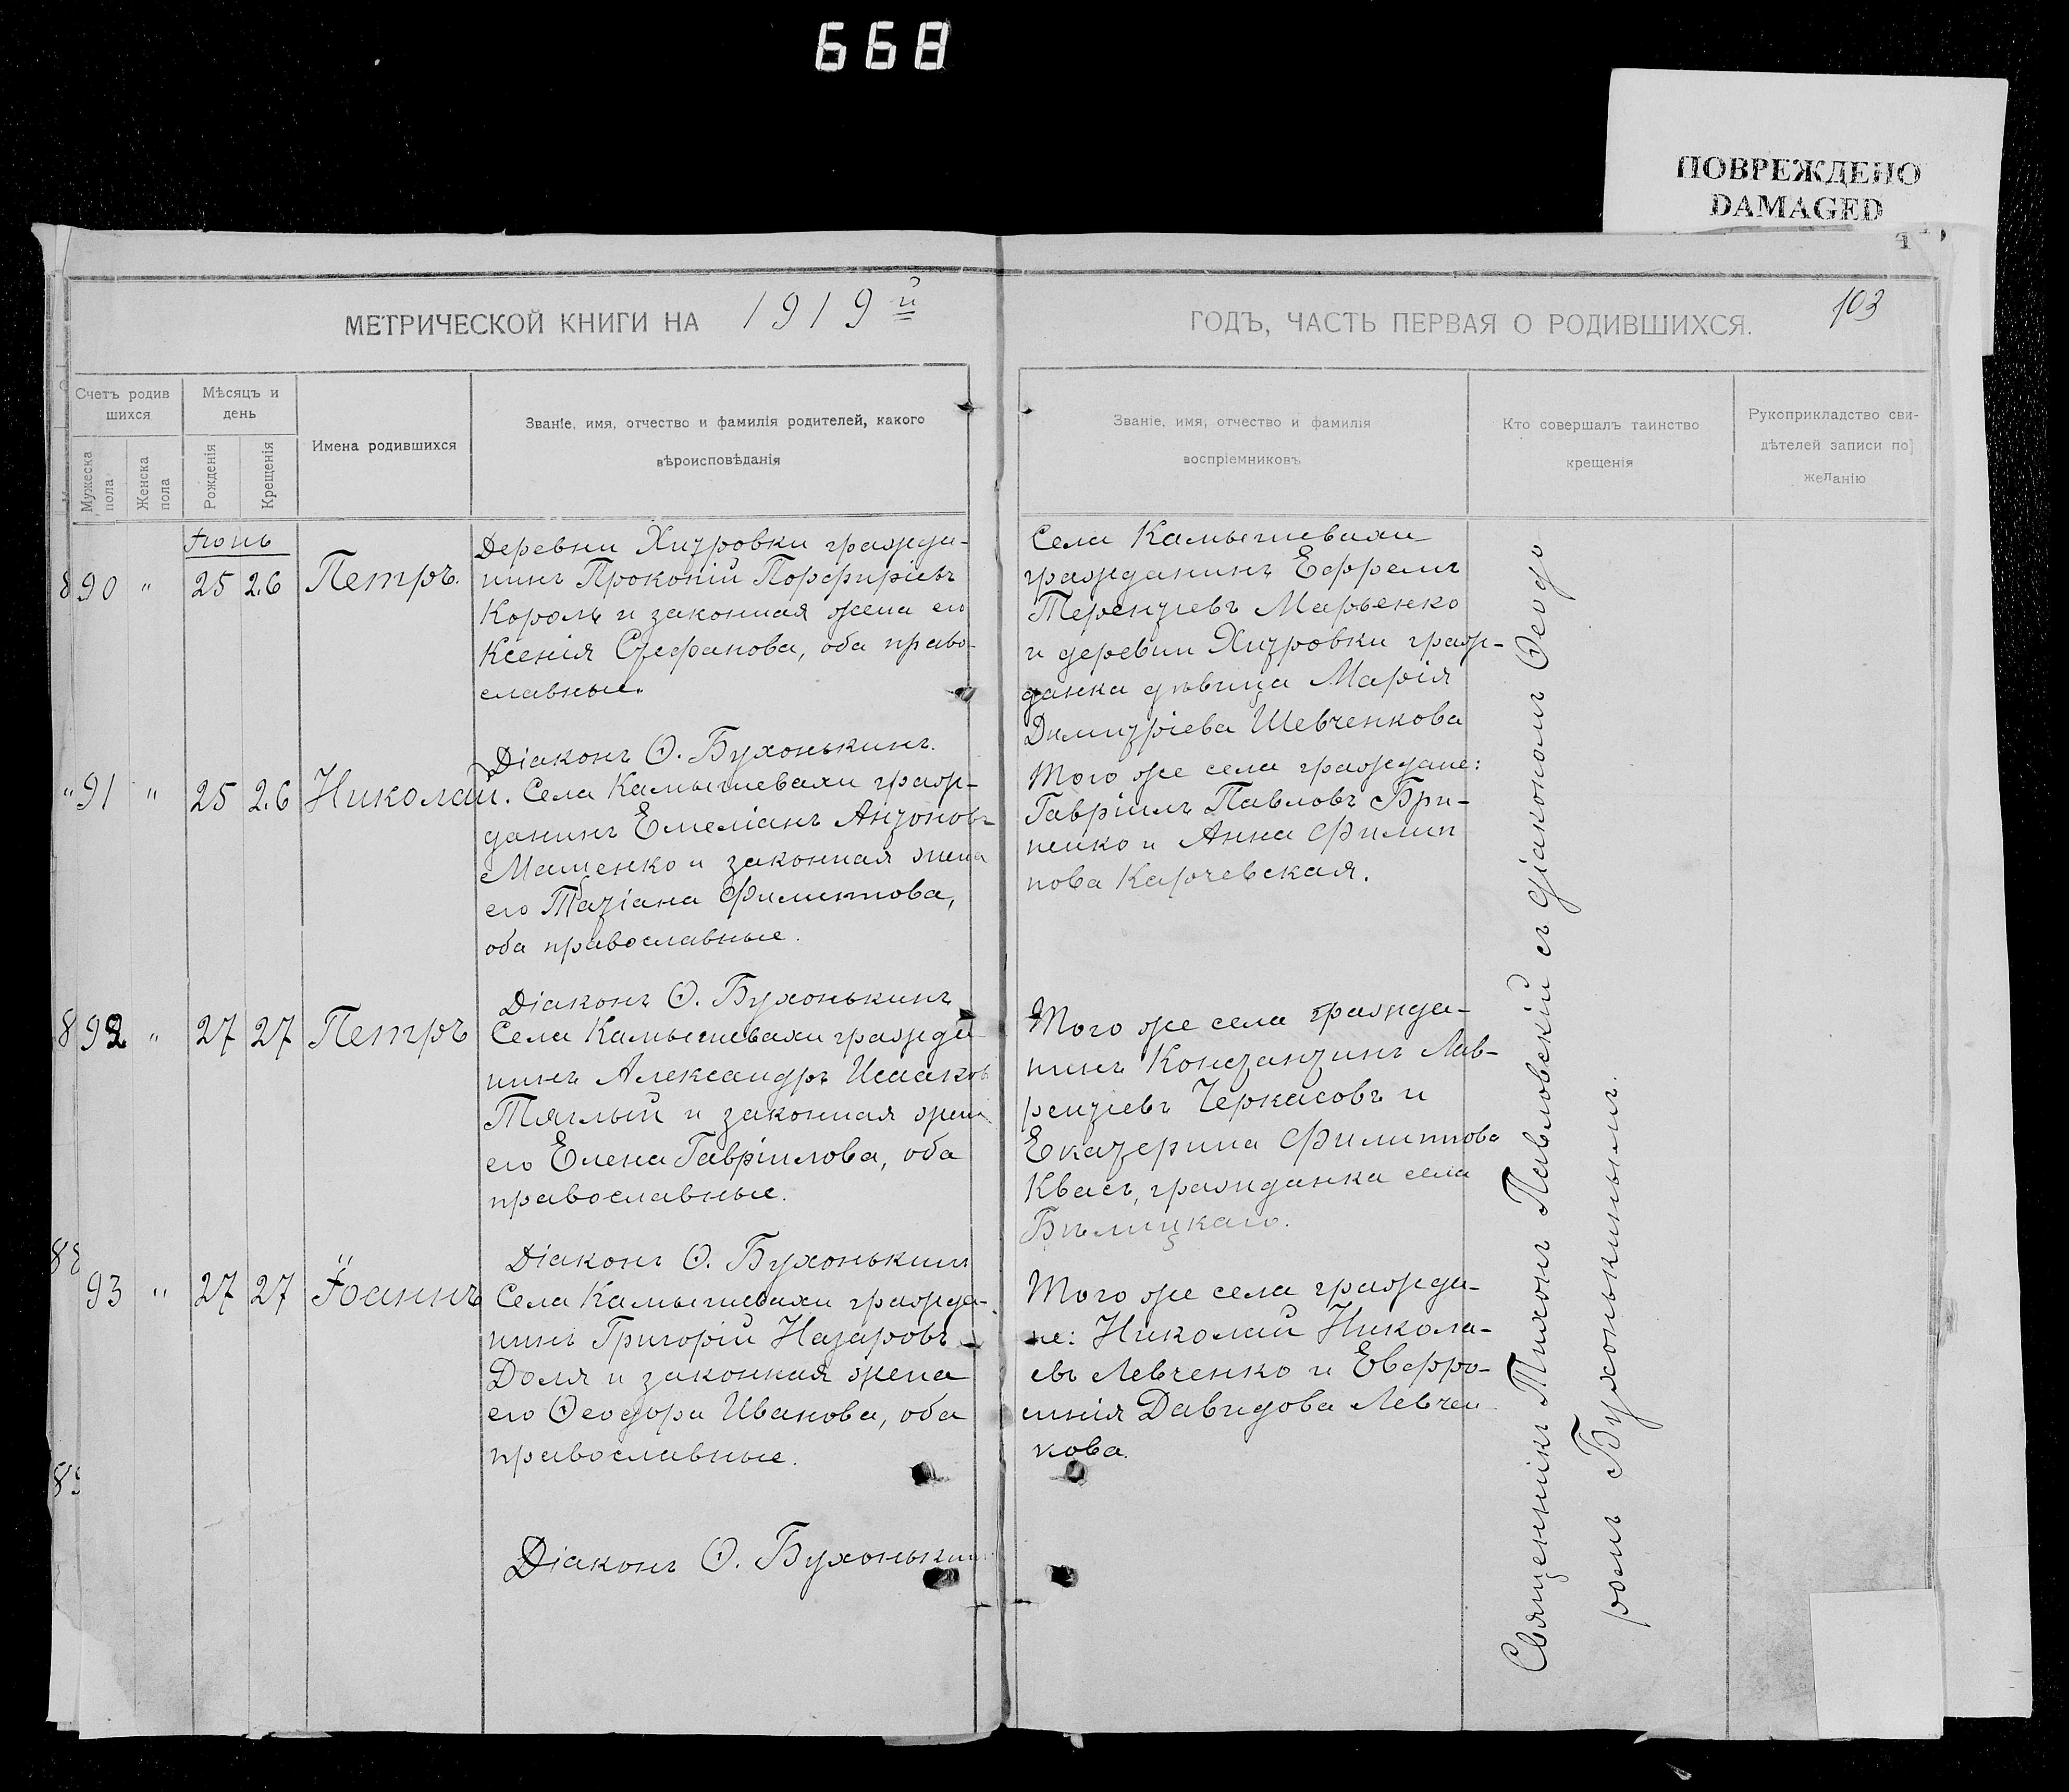 668
ПОВРЕЖДЕНО
DAMAGED
МЕТРИЧЕСКОЙ КНИГИ НА 1919й
ГОДЪ, ЧАСТЬ ПЕРВАЯ О РОДИВШИХСЯ.
103
Счетъ родив
шихся
Мужеска пола
Женска пола
Мѣсяцъ и
день
Рожденія
Крещенія
Имена родившихся
Званіе, имя, отчество и фамилія родителей, какого
вѣроисповѣданія
Званіе, имя, отчество и фамилія
воспріемниковъ
Кто совершалъ таинство
крещенія
Рукоприкладство сви-
дѣтелей записи по
желанію
Іюнь
90 " 25 26 Петръ.
Деревни Хитровки гражда-
нинъ Прокопій Порфиріевъ
Король и законная жена его
Ксенія Стефанова, оба право-
славные.
Діаконъ Ѳ. Бухонькинъ.
Села Камышевахи
гражданинъ Ефремъ
Терентіевъ Марьенко
и деревни Хитровки граж-
данка дѣвица Марія
Димитріева Шевченкова
" 91 " 25 26 Николай.
Села Камышевахи граж-
данинъ Емеліанъ Антоновъ
Маменко и законная жена
его Татіана Филиппова,
оба православные.
Діаконъ Ѳ. Бухонькинъ
Того же села граждане:
Гавріилъ Павловъ Гри-
ненко и Анна Филип
пова Карчевская.
92 " 27 27 Петръ
Села Камышевахи гражда-
нинъ Александръ Исааков
Тяглый и законная жен
его Елена Гавріилова, оба
православные.
Діаконъ Ѳ. Бухонькин
Того же села гражда-
нинъ Константинъ Лав-
рентіевъ Черкасовъ и
Екатерина Филиппова
Квасъ, гражданка села
Бѣлицкаго.
93 " 27 27 Іоаннъ
Села Камышевахи гражда-
нинъ Григорій Назаровъ
Доля и законная жена
его Ѳеодора Иванова, оба
православные.
Діаконъ Ѳ. Бухонькин
Того же села гражда-
не: Николай Никола-
евъ Левченко и Евфро-
синія Давидова Левчен
кова.
Священникъ Тихонъ Павловскій съ діакономъ Ѳеодо
ромъ Бухонькинымъ.